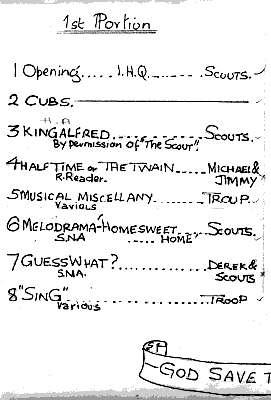 1st Portion
1 Opening..... I.H.Q. ..... Scouts.
2 CUBS.
3 KING ALFRED............Scouts.
By permission of "The Scout".
4 HALF TIME or THE TWAIN......MICHAEL &
R. Reader. JIMMY
5 MUSICAL MISCELLANY.......TROUP.
Various
6 MELODRAMA-"HOME SWEET.....Scouts.
S.N.A ..... HOME"
7 GUESS WHAT?..............DEREK &
S.N.A. SCOUTS
8 "SING"..................TROOP
Various
GOD SAVE T